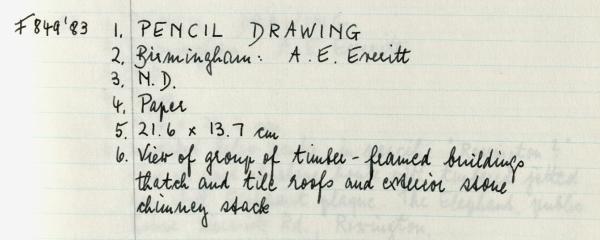 F849'83 1. PENCIL DRAWING
2. Birmingham: A. E. Everitt
3. N.D.
4. Paper
5. 21.6 x 13.7 cm
6. View of group of timber-framed buildings
thatch and tile roofs and exterior stone
chimney stack